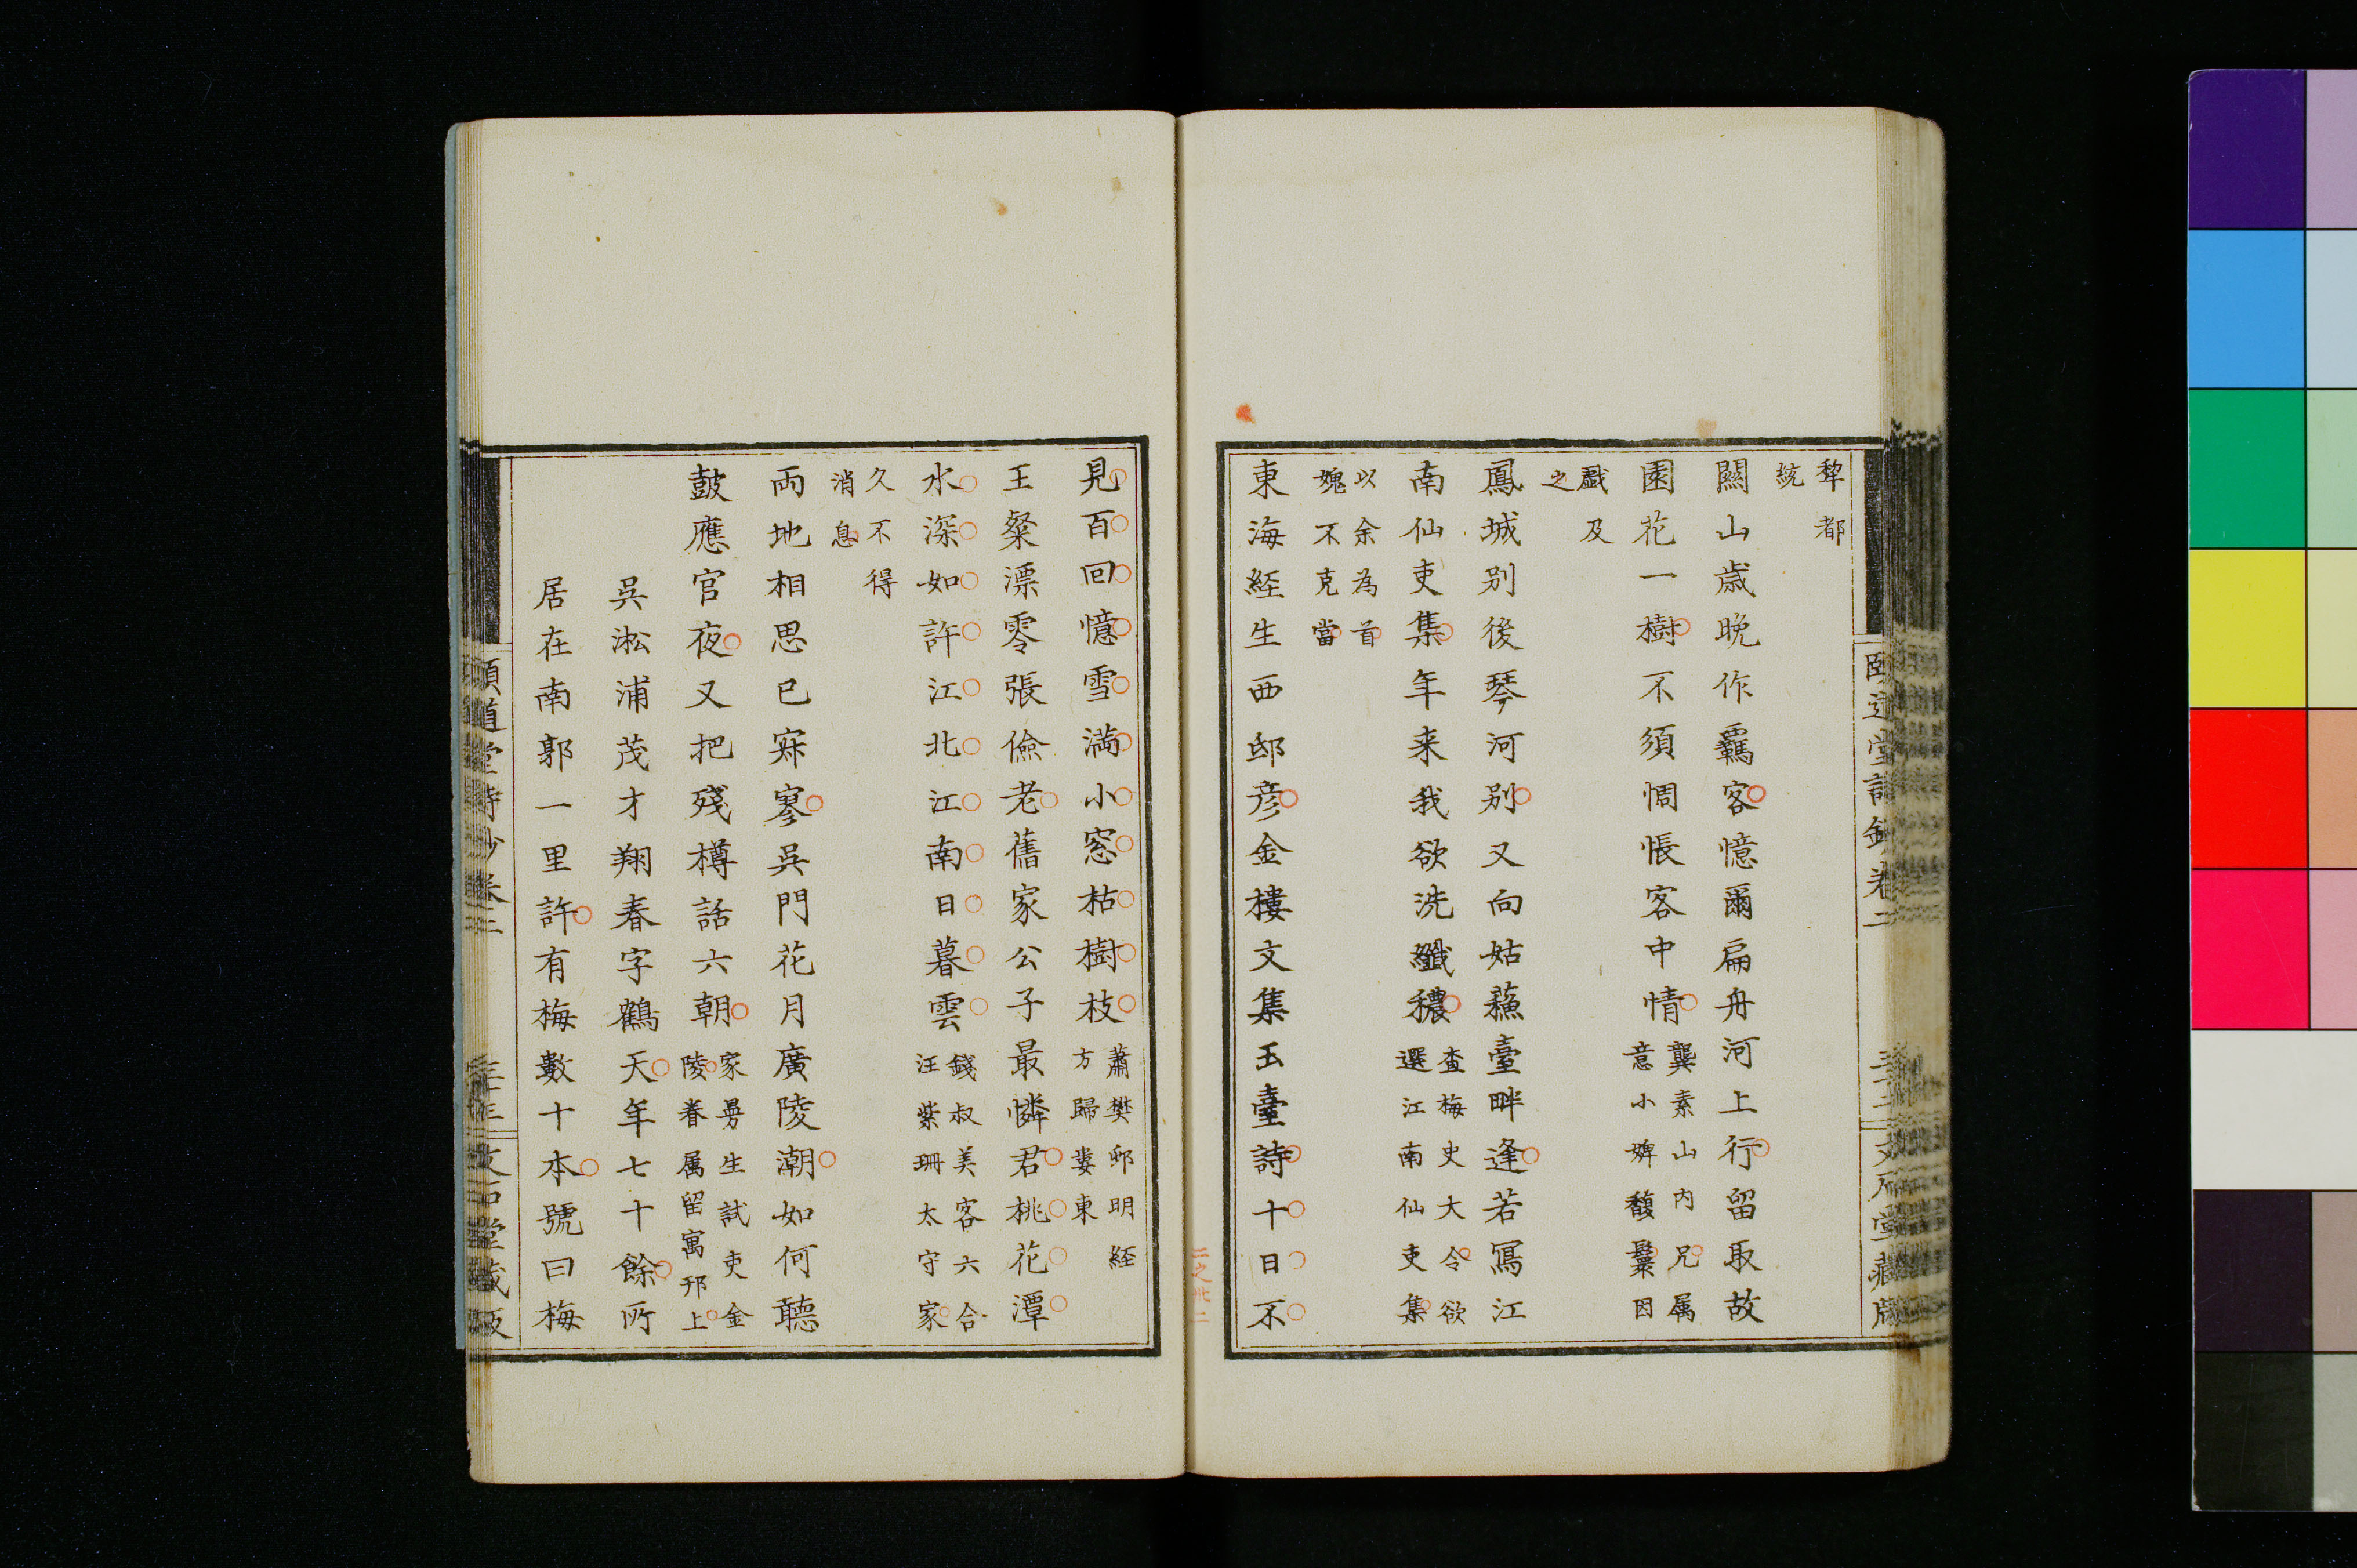 犂都
統
關山歳晩作羈客憶爾扁舟河上行留取故
園花一樹不須惆悵客中情龔素山內兄属
意小婢馥鬟因
戲及
之
鳳城別後琴河別又向姑蘓臺畔逢若寫江
南仙吏集年来我欲洗纖穠査梅史大令欲
選江南仙吏集
以余為首
媿不克當
東海經生西邸彦金樓文集玉臺詩十日不
見百回憶雪満小窓枯樹枝蕭樊邨明経
方歸婁東
王粲漂零張儉老舊家公子最憐君桃花潭
水深如許江北江南日暮雲錢叔美客六合
汪紫珊太守家
久不得
消息
兩地相思已寂寥吳門花月廣陵潮如何聽
鼓應官夜又把殘樽話六朝家曼生試吏金
陵眷属留寓邗上
吳淞浦茂才翔春字鶴天年七十餘所
居在南郭一里許有梅數十本號曰梅
頤道堂詩鈔卷二
文石堂藏版